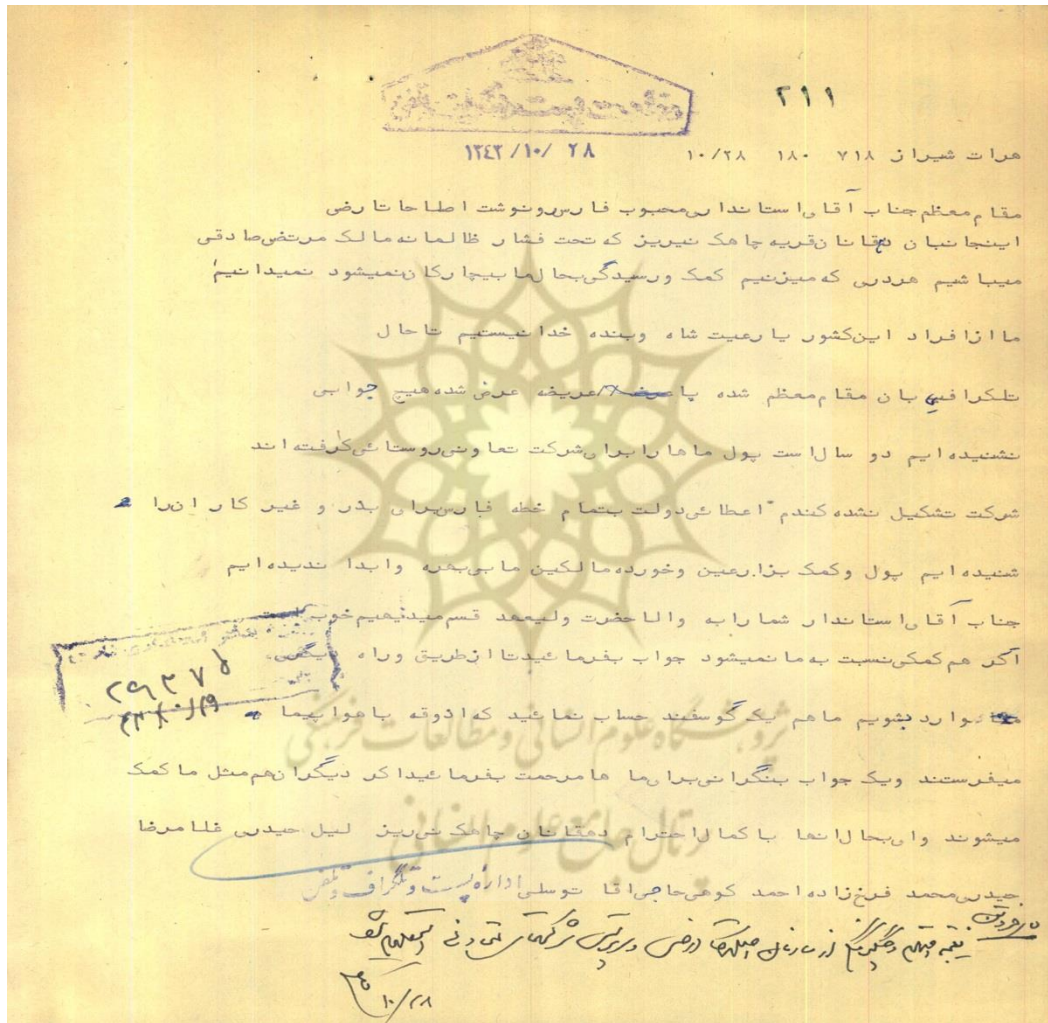 ۲۱۱
۱۳۴۳/۱۰/۲۸
هرات شیراز ۷۱۸ ۱۸۰ ۱۰/۲۸
مقام معظم جناب آقای استانداری محبوب فارس رونوشت اطلاحات ارضی
اینجانبان دهقانان قریه چاهک نیریز که تحت فشار ظالمانه مالک مرتضی صادقی
میباشیم هردری که میزنیم کمک و رسیدگی بحال ما بیچارکان نمیشود نمیدانیم
ما از افراد این کشور یا رعیت شاه وبنده خدا نیستیم تا حال
تلکرافی بان مقام معظم شده یا عریضه عرض شده هیچ جوابی
نشنیده ایم دو سال است پول ماها را برای شرکت تعاونی روستائی کرفته اند
شرکت تشکیل نشده کندم اعطائی دولت بتمام خطه فارس برای بذر و غیر کار انرا
شنیده ایم پول وکمک بزارعین وخورده مالکین ما بی بهره وابدا ندیده ایم
جناب آقای استاندار شما رابه والاحضرت ولیعهد قسم میدهیم خوب است
اکر هم کمکی نسبت به ما نمیشود جواب بفرمائید تا ازطریق وراه دیگری
وارد بشویم ما هم یک گوسفند حساب نمائید که اذوقه با هواپیما
میفرستند ویک جواب بنگرانی برای ما ها مرحمت بفرمائید اکر دیگران هم مثل ما کمک
میشوند وای بحال انها با کمال احترام دهقانان چاهک نی ریز لیل حیدری غلامرضا
حیدری محمد فرخ زاده احمد کوهی حاجی اقا توسلی اداره پست و تلگراف و تلفن
۲۹۳۷۵
پژوهشگاه علوم انسانی و مطالعات فرهنگی
پرتال جامع علوم انسانی
از سازمان اصلاحات ارضی و سرپرستی شرکتهای تعاونی استعلام شود
۱۰/۲۸